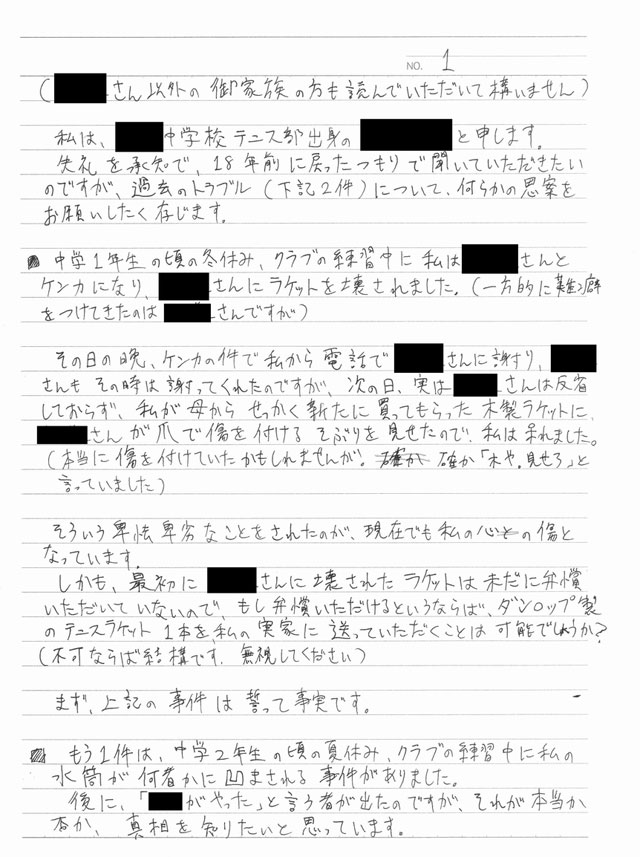 NO. 1
(さん以外の御家族の方も読んでいただいて構いません)
私は、中学校テニス部出身のと申します。
失礼を承知で、18年前に戻ったつもりで聞いていただきたい
のですが、過去のトラブル(下記2件)について、何らかの思案を
お願いしたく存じます。
中学1年生の頃の冬休み、クラブの練習中に私はさんと
ケンカになり、さんにラケットを壊されました。(一方的に難癖
をつけてきたのはさんですが)
その日の晩、ケンカの件で私から電話でさんに謝り、
さんもその時は謝ってくれたのですが、次の日、実はさんは反省
しておらず、私が母からせっかく新たに買ってもらった木製ラケットに、
さんが爪で傷を付けるそぶりを見せたので、私は呆れました。
(本当に傷を付けていたかもしれませんが。確か「木や。見せろ」と
言っていました)
そういう卑怯卑劣なことをされたのが、現在でも私の心の傷と
なっています。
しかも、最初にさんに壊されたラケットは未だに弁償
いただいていないので、もし弁償いただけるというならば、ダンロップ製
のテニスラケット1本を、私の実家に送っていただくことは可能でしょうか?
(不可ならば結構です。無視してください)
まず、上記の事件は誓って事実です。
もう1件は、中学2年生の頃の夏休み、クラブの練習中に私の
水筒が何者かに凹まされる事件がありました。
後に、「がやった」と言う者が出たのですが、それが本当か
否か、真相を知りたいと思っています。